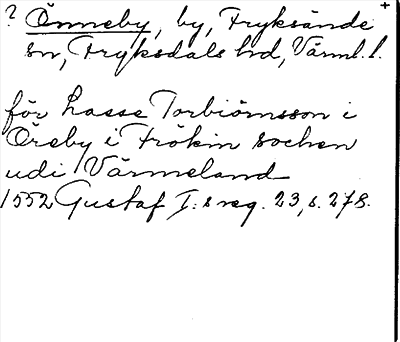 ? Önneby, by, Fryksände +
sn, Fryksdals hd, Värml. l.
för Lasse Torbiörnsson i
Öreby i Frökin sochen
udi Värmeland
1552 Gustaf I:s reg. 23, s. 278.